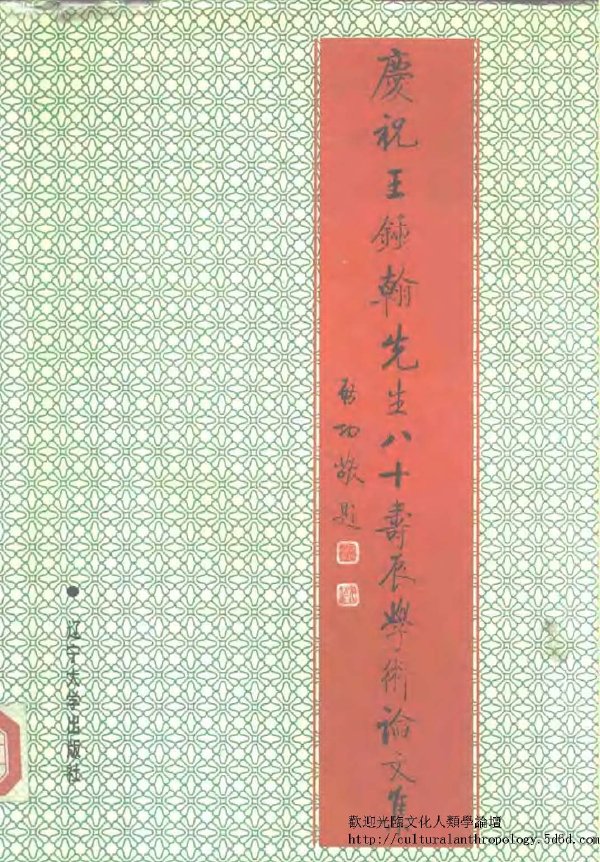 慶祝王鍾翰先生八十壽辰學術論文集
啟功敬題
辽宁大学出版社
歡迎光臨文化人類學論壇
http://culturalanthropology.5d6d.com